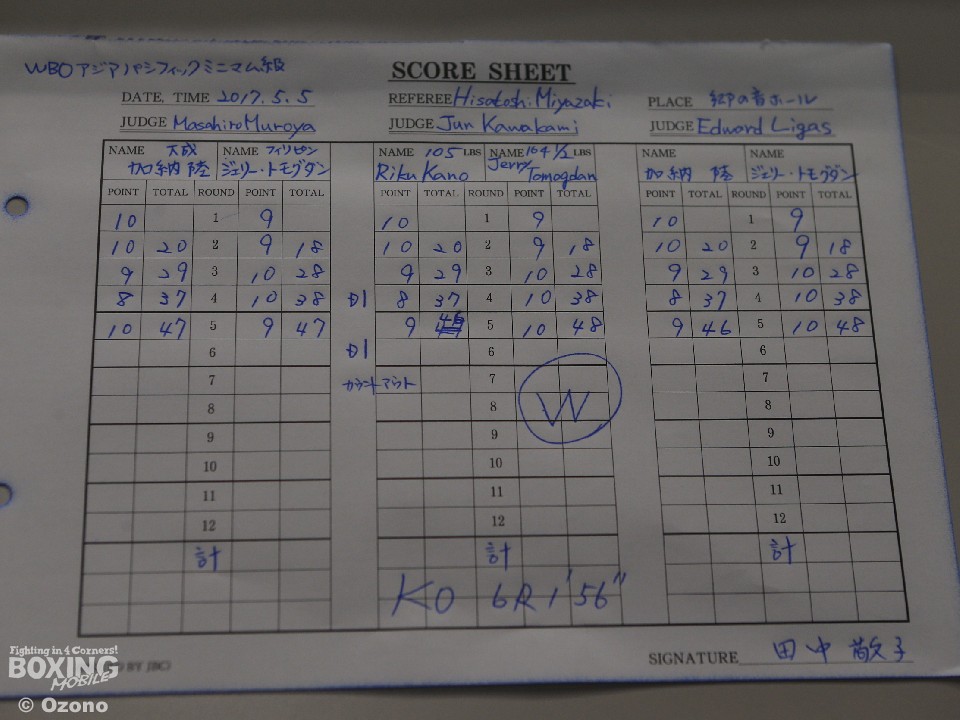 WBOアジアパシフィックミニマム級
SCORE SHEET
DATE, TIME 2017.5.5 REFEREE Hisatoshi Miyazaki PLACE
JUDGE Masahiro Muroya JUDGE Jun Kawakami JUDGE Edward Ligas
NAME 大成 NAME フィリピン NAME 105 LBS NAME 104 1/2 LBS NAME NAME
加納 陸 ジェリー・トモグダン Riku Kano Jerry Tomogdan 加納 陸 ジェリー・トモグダン
POINT TOTAL ROUND POINT TOTAL POINT TOTAL ROUND POINT TOTAL POINT TOTAL ROUND POINT TOTAL
10 1 9 10 1 9 10 1 9
10 20 2 9 18 10 20 2 9 18 10 20 2 9 18
9 29 3 10 28 9 29 3 10 28 9 29 3 10 28
8 37 4 10 38 D1 8 37 4 10 38 8 37 4 10 38
10 47 5 9 47 9 46 5 10 48 9 46 5 10 48
6 D1 6 6
7 カウントアウト 7 7
8 8 W 8
9 9 9
10 10 10
11 11 11
12 12 12
計 計 計
KO 6R 1'56"
SIGNATURE 田中 敬子
BY JBC)
Fighting in 4 Corners!
BOXING
MOBILE
© Ozono